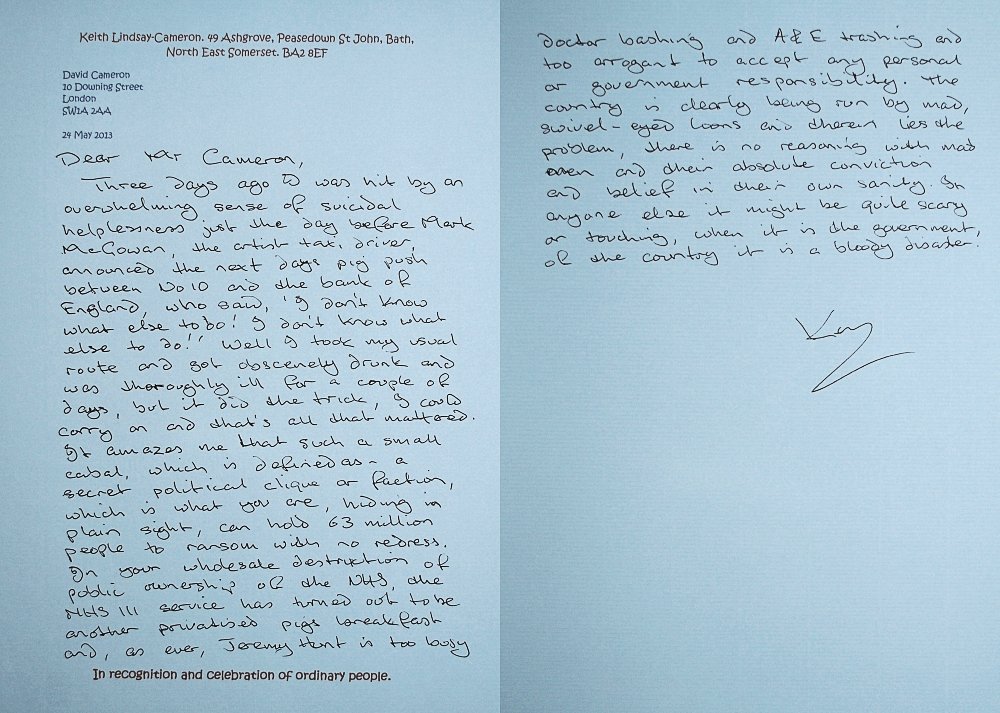 Keith Lindsay-Cameron. 49 Ashgrove, Peasedown St John, Bath,
North East Somerset. BA2 8EF
David Cameron
10 Downing Street
London
SW1A 2AA
24 May 2013
Dear Mr Cameron,
Three days ago I was hit by an
overwhelming sense of suicidal
helplessness just the day before Mark
McGowan, the artist taxi driver,
anounced the next days pig push
between No 10 and the bank of
England, who said, 'I don't know
what else to do! I don't know what
else to do!' Well I took my usual
route and got obscenely drunk and
was thoroughly ill for a couple of
days, but it did the trick, I could
carry on and that's all that mattered.
It amazes me that such a small
cabal, which is defined as - a
secret political clique or faction,
which is what you are, hiding in
plain sight, can hold 63 million
people to ransom with no redress.
In your wholesale destruction of
public ownership of the NHS, the
NHS 111 service has turned out to be
another privatised pigs breakfast
and, as ever, Jeremy Hunt is too busy
In recognition and celebration of ordinary people.
doctor bashing and A & E trashing and
too arrogant to accept any personal
or government responsibility. The
country is clearly being run by mad,
swivel-eyed loons and therein lies the
problem, there is no reasoning with mad
and their absolute conviction
and belief in their own sanity. In
anyone else it might be quite scary
or touching, when it is the government,
of the country it is a bloody disaster.